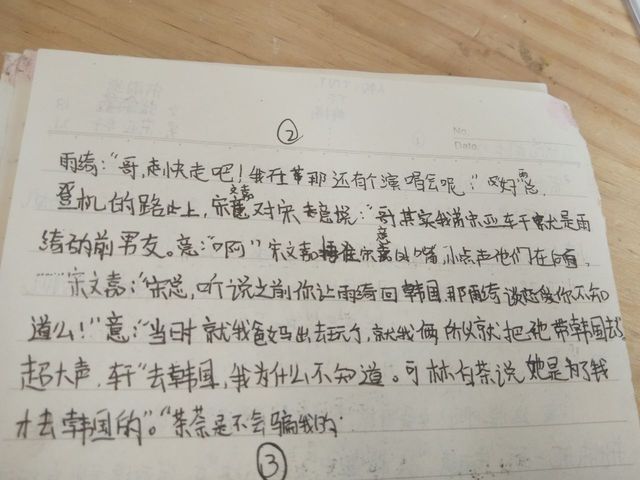 ②
No.
Date
雨绮:“哥,赶快走吧!我在革那还有个演唱会呢。”“好”雨总.
登机的路上上,宋文嘉对宋意说:“哥其实我前宋亚轩就是雨
绮的前男友。意:“啊”宋文嘉捂住宋意的嘴,小点声他们在后面。
……宋文嘉:“宋总,听说之前你让雨绮回韩国,那雨绮谈恋爱你不知
道么!”意:“当时就我爸妈出去玩了,就我俩所以就把他带韩国去了”
超大声.轩“去韩国,我为什么不知道。可林白茶说她是为了我
才去韩国的”。“茶茶是不会骗我的.
③